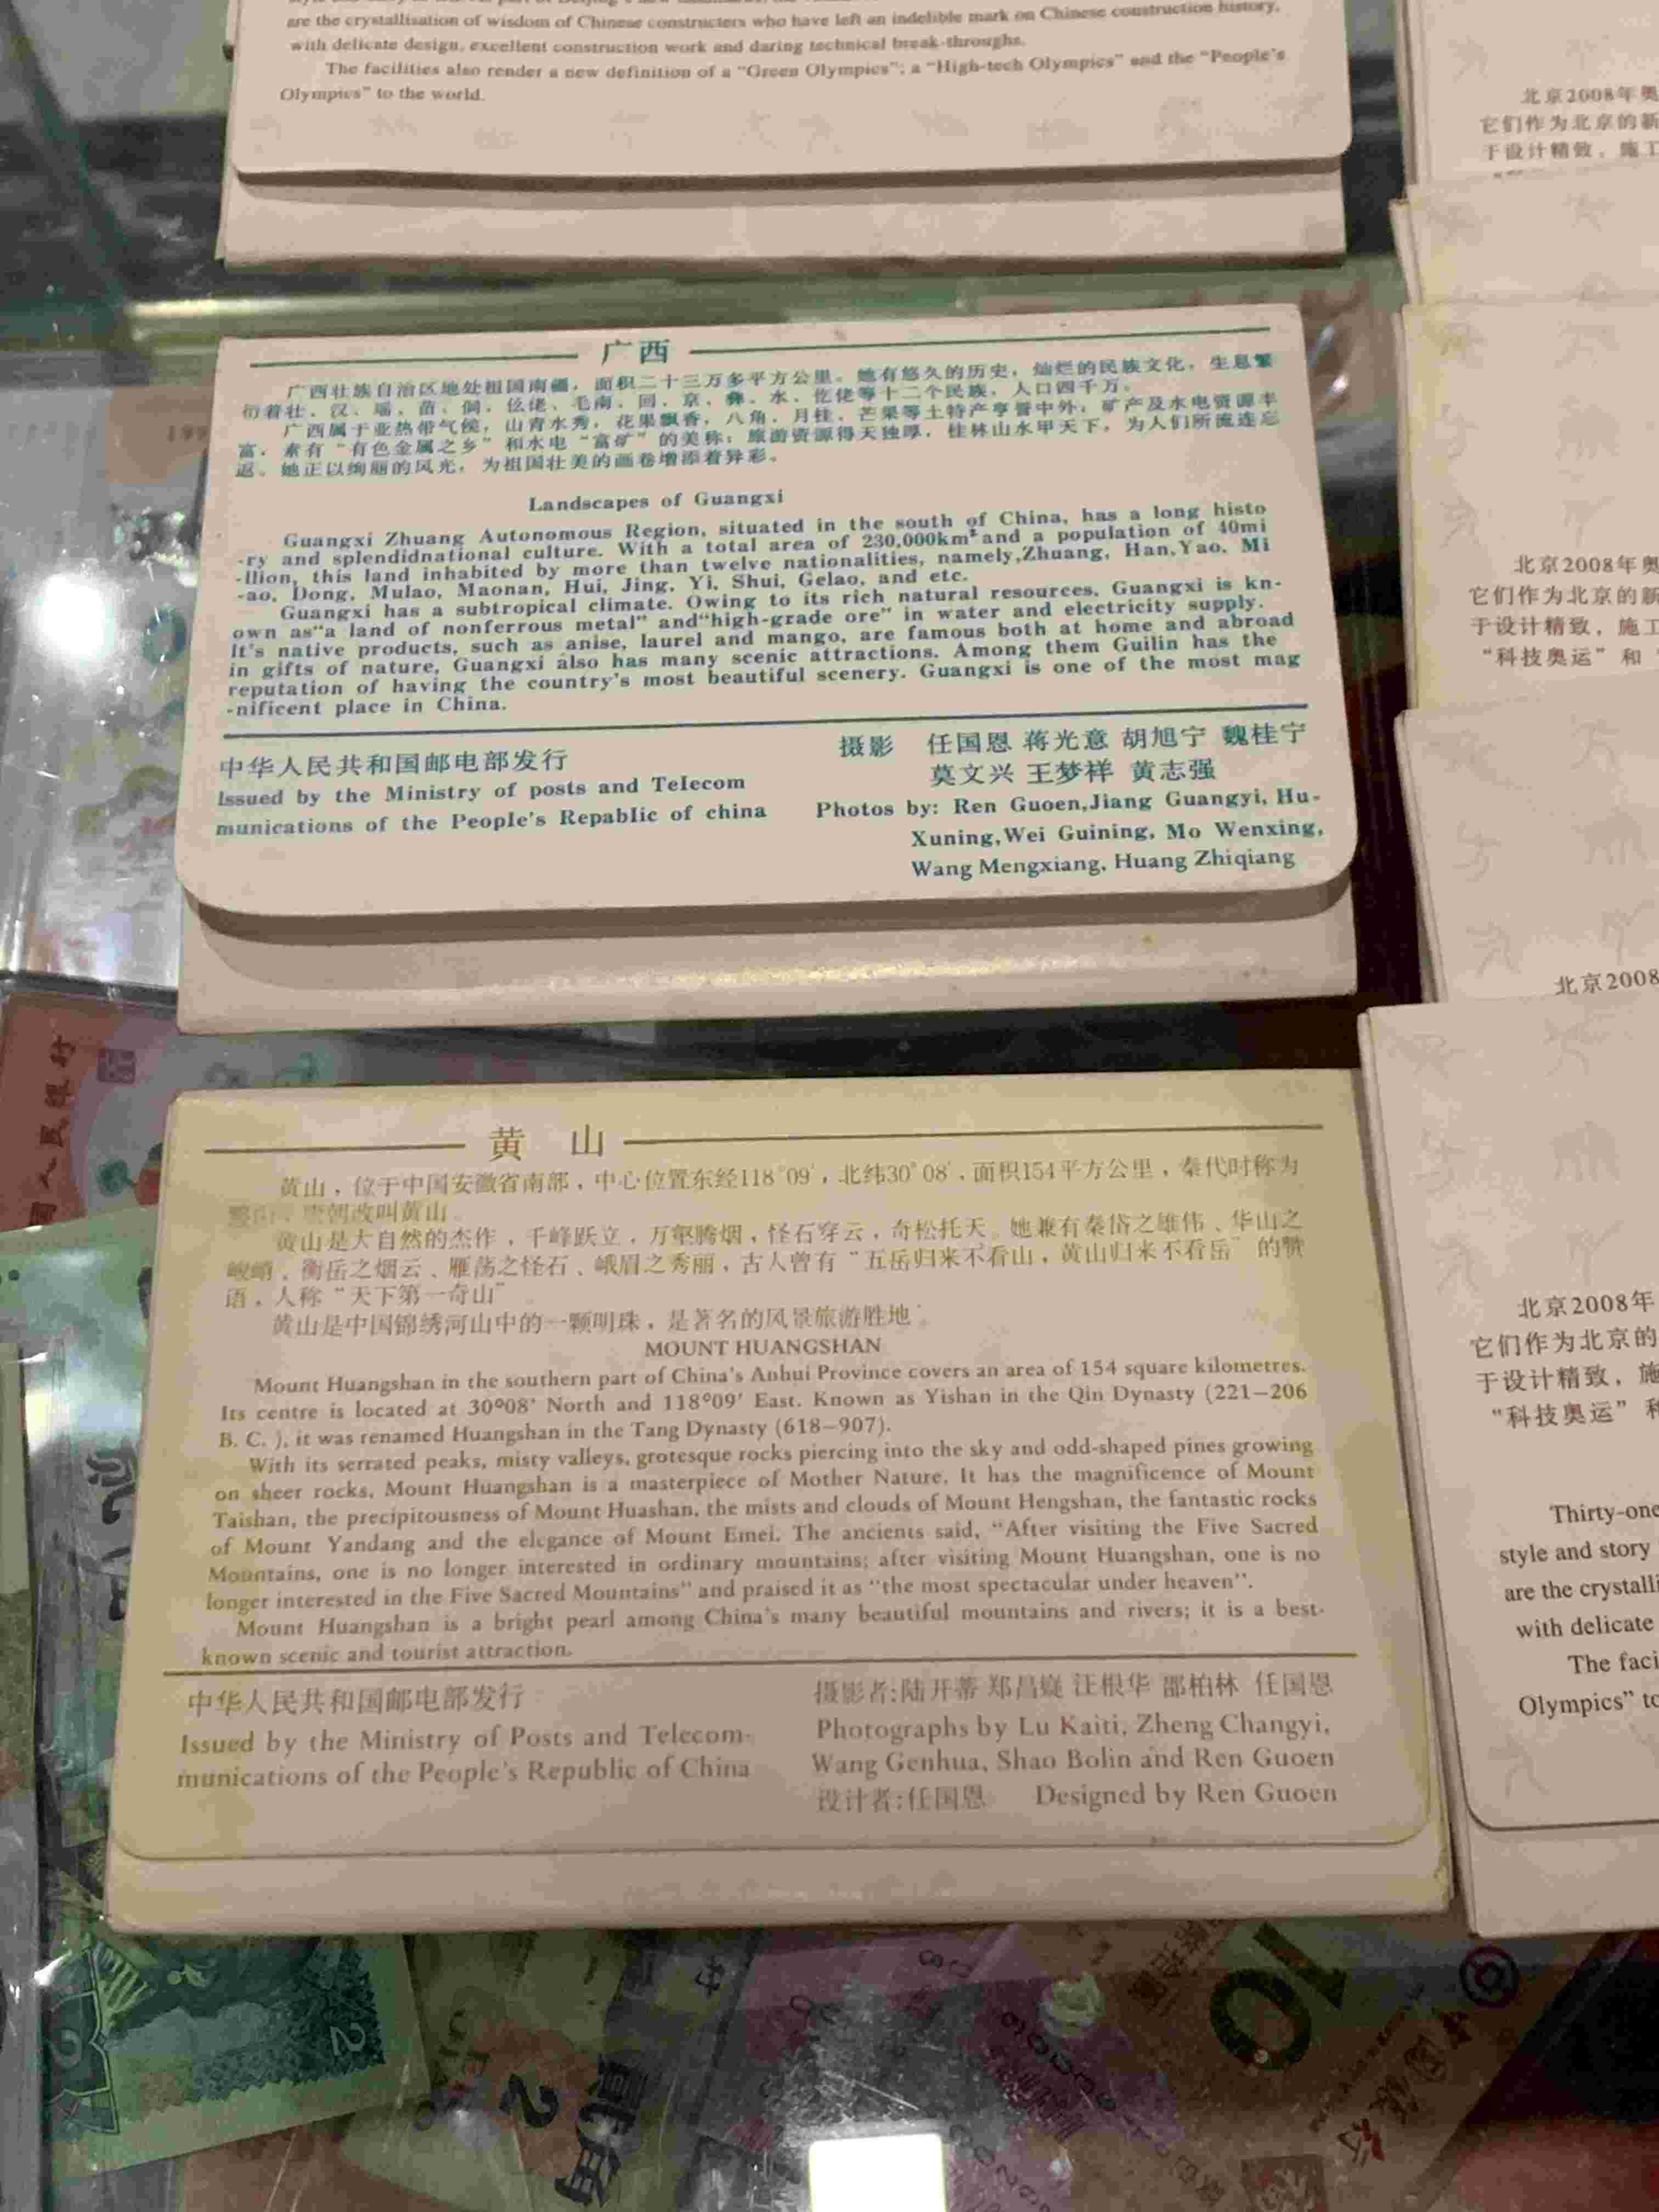 are the crystallisation of wisdom of Chinese constructers who have left an indelible mark on Chinese construction history,
with delicate design, excellent construction work and daring technical break-throughs.
The facilities also render a new definition of a "Green Olympics"; a "High-tech Olympics" and the "People's
Olympics" to the world.
广西
广西壮族自治区地处祖国南疆，面积二十三万多平方公里。她有悠久的历史，灿烂的民族文化，生息繁
衍着壮、汉、瑶、苗、侗、仫佬、毛南、回、京、彝、水、仡佬等十二个民族，人口四千万。
广西属于亚热带气候，山青水秀，花果飘香，八角、月桂、芒果等土特产享誉中外，矿产及水电资源丰
富，素有“有色金属之乡”和水电“富矿”的美称；旅游资源得天独厚，桂林山水甲天下，为人们所流连忘
返。她正以绚丽的风光，为祖国壮美的画卷增添着异彩。
Landscapes of Guangxi
Guangxi Zhuang Autonomous Region, situated in the south of China, has a long histo
-ry and splendidnational culture. With a total area of 230,000km² and a population of 40mi
-llion, this land inhabited by more than twelve nationalities, namely,Zhuang, Han,Yao, Mi
-ao, Dong, Mulao, Maonan, Hui, Jing, Yi, Shui, Gelao, and etc.
Guangxi has a subtropical climate. Owing to its rich natural resources, Guangxi is kn-
own as"a land of nonferrous metal" and"high-grade ore" in water and electricity supply.
It's native products, such as anise, laurel and mango, are famous both at home and abroad
in gifts of nature, Guangxi also has many scenic attractions. Among them Guilin has the
reputation of having the country's most beautiful scenery. Guangxi is one of the most mag
-nificent place in China.
中华人民共和国邮电部发行
Issued by the Ministry of posts and Telecom
munications of the People's Repablic of china
摄影 任国恩 蒋光意 胡旭宁 魏桂宁
莫文兴 王梦祥 黄志强
Photos by: Ren Guoen,Jiang Guangyi, Hu-
Xuning,Wei Guining, Mo Wenxing,
Wang Mengxiang, Huang Zhiqiang
黄 山
黄山，位于中国安徽省南部，中心位置东经118°09′，北纬30°08′，面积154平方公里，秦代时称为
黟山，唐朝改叫黄山。
黄山是大自然的杰作，千峰跃立，万壑腾烟，怪石穿云，奇松托天。她兼有秦岱之雄伟、华山之
峻峭、衡岳之烟云、雁荡之怪石、峨眉之秀丽，古人曾有“五岳归来不看山，黄山归来不看岳”的赞
语，人称“天下第一奇山”
黄山是中国锦绣河山中的一颗明珠，是著名的风景旅游胜地。
MOUNT HUANGSHAN
Mount Huangshan in the southern part of China's Anhui Province covers an area of 154 square kilometres.
Its centre is located at 30°08' North and 118°09' East. Known as Yishan in the Qin Dynasty (221–206
B. C. ), it was renamed Huangshan in the Tang Dynasty (618–907).
With its serrated peaks, misty valleys, grotesque rocks piercing into the sky and odd-shaped pines growing
on sheer rocks, Mount Huangshan is a masterpiece of Mother Nature. It has the magnificence of Mount
Taishan, the precipitousness of Mount Huashan, the mists and clouds of Mount Hengshan, the fantastic rocks
of Mount Yandang and the elegance of Mount Emei. The ancients said, "After visiting the Five Sacred
Mountains, one is no longer interested in ordinary mountains; after visiting Mount Huangshan, one is no
longer interested in the Five Sacred Mountains" and praised it as "the most spectacular under heaven".
Mount Huangshan is a bright pearl among China's many beautiful mountains and rivers; it is a best-
known scenic and tourist attraction.
中华人民共和国邮电部发行
Issued by the Ministry of Posts and Telecom-
munications of the People's Republic of China
摄影者:陆开蒂 郑昌嶷 汪根华 邵柏林 任国恩
Photographs by Lu Kaiti, Zheng Changyi,
Wang Genhua, Shao Bolin and Ren Guoen
设计者:任国恩 Designed by Ren Guoen
北京2008年奥
它们作为北京的新
于设计精致，施工
北京2008年奥
它们作为北京的新
于设计精致，施工
“科技奥运”和
北京2008
北京2008年
它们作为北京的
于设计精致，施
“科技奥运”和
Thirty-one
style and story
are the crystalli
with delicate
The faci
Olympics" to
2
2
贰角
10